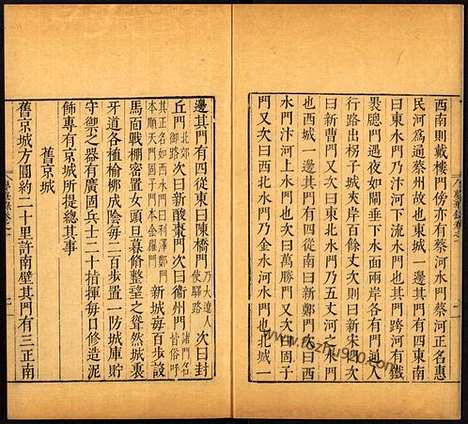 西南則戴樓門傍亦有蔡河水門蔡河正名惠
民河為通蔡州故也東城一邊其門有四東南
曰東水門乃汴河下流水門也其門跨河有鐵
裹牕門遇夜如閘垂下水面兩岸各有門通人
行路出柺子城夾岸百餘丈次則曰新宋門次
曰新曹門又次曰東北水門乃五丈河之水門
也西城一邊其門有四從南曰新鄭門次曰西
水門汴河上水門也次曰萬勝門又次曰固子
門又次曰西北水門乃金水河水門也北城一
邊其門有四從東曰陳橋門乃大遼人使驛路次曰封
丘門北郊御路次曰新酸棗門次曰衞州門諸門名皆俗呼
其正名如西水門曰利澤鄭門本順天門固子門本金耀門新城每百步設
馬面戰棚密置女頭旦暮修整望之聳然城裏
牙道各植榆柳成陰每二百步置一防城庫貯
守禦之器有廣固兵士二十指揮每日修造泥
飾專有京城所提總其事
舊京城
舊京城方圓約二十里許南壁其門有三正南